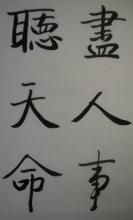 盡人事
聽天命